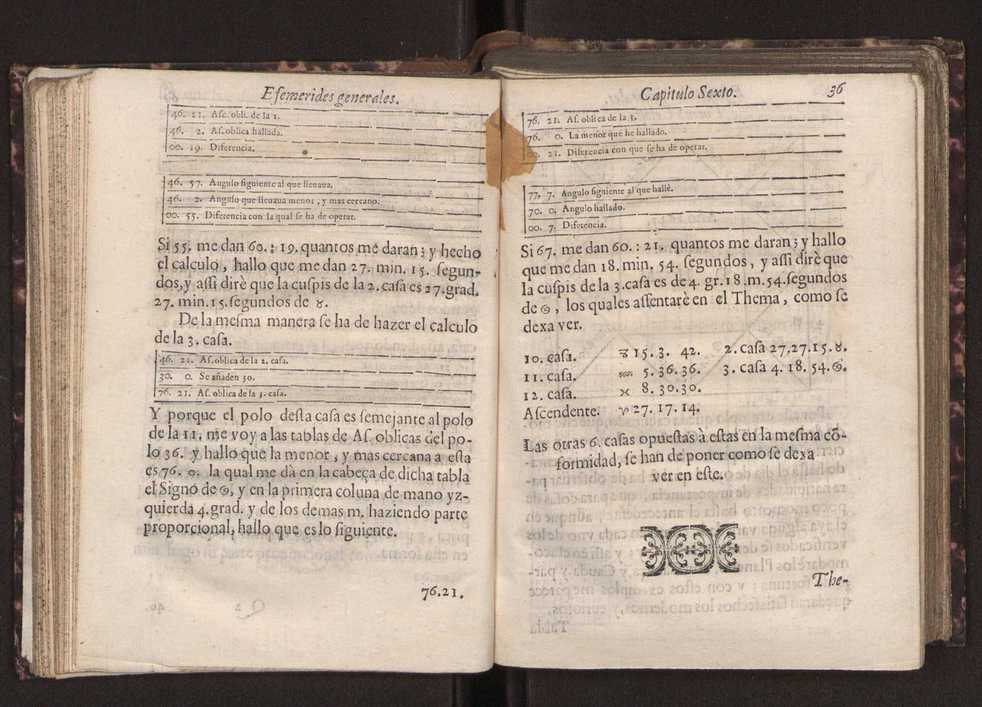 Efemerides generales.
46. 21. Asc. obli. de la 1.
46. 2. As. oblica hallada.
00. 19. Diferencia.
46. 57. Angulo siguiente al que lleuaua.
46. 2. Angulo que lleuaua menor, y mas cercano.
00. 55. Diferencia con la qual se ha de operar.
Si 55. me dan 60. : 19. quantos me daran; y hecho
el calculo, hallo que me dan 27. min. 15. segun-
dos, y assi dirè que la cuspis de la 2. casa es 27. grad.
27. min. 15. segundos de ♉.
De la mesma manera se ha de hazer el calculo
de la 3. casa.
46. 21. As. oblica de la 2. casa.
30. 0. Se añaden 30.
76. 21. As. oblica de la 3. casa.
Y porque el polo desta casa es semejante al polo
de la 11. me voy a las tablas de As. oblicas del po-
lo 36. y hallo que la menor, y mas cercana a esta
es 76. 0. la qual me dà en la cabeça de dicha tabla
el Signo de ♋, y en la primera coluna de mano yz-
quierda 4. grad. y de los demas m. haziendo parte
proporcional, hallo que es lo siguiente.
76.21.
Capitulo Sexto. 36
76. 21. As. oblica de la 3.
76. 0. La menor que he hallado.
21. Diferencia con que se ha de operar.
77. 7. Angulo siguiente al que hallè.
70. 0. Angulo hallado.
00. 7. Diferencia.
Si 67. me dan 60. : 21. quantos me daran; y hallo
que me dan 18. min. 54. segundos, y assi dirè que
la cuspis de la 3. casa es de 4. gr. 18. m. 54. segundos
de ♋, los quales assentarè en el Thema, como se
dexa ver.
10. casa. ♑ 15. 3. 42. 2. casa 27. 27. 15. ♉.
11. casa. ♒ 5. 36. 36. 3. casa 4. 18. 54. ♋.
12. casa. ♓ 8. 30. 30.
Ascendente. ♈ 27. 17. 14.
Las otras 6. casas opuestas à estas en la mesma cõ-
formidad, se han de poner como se dexa
ver en este.
The-